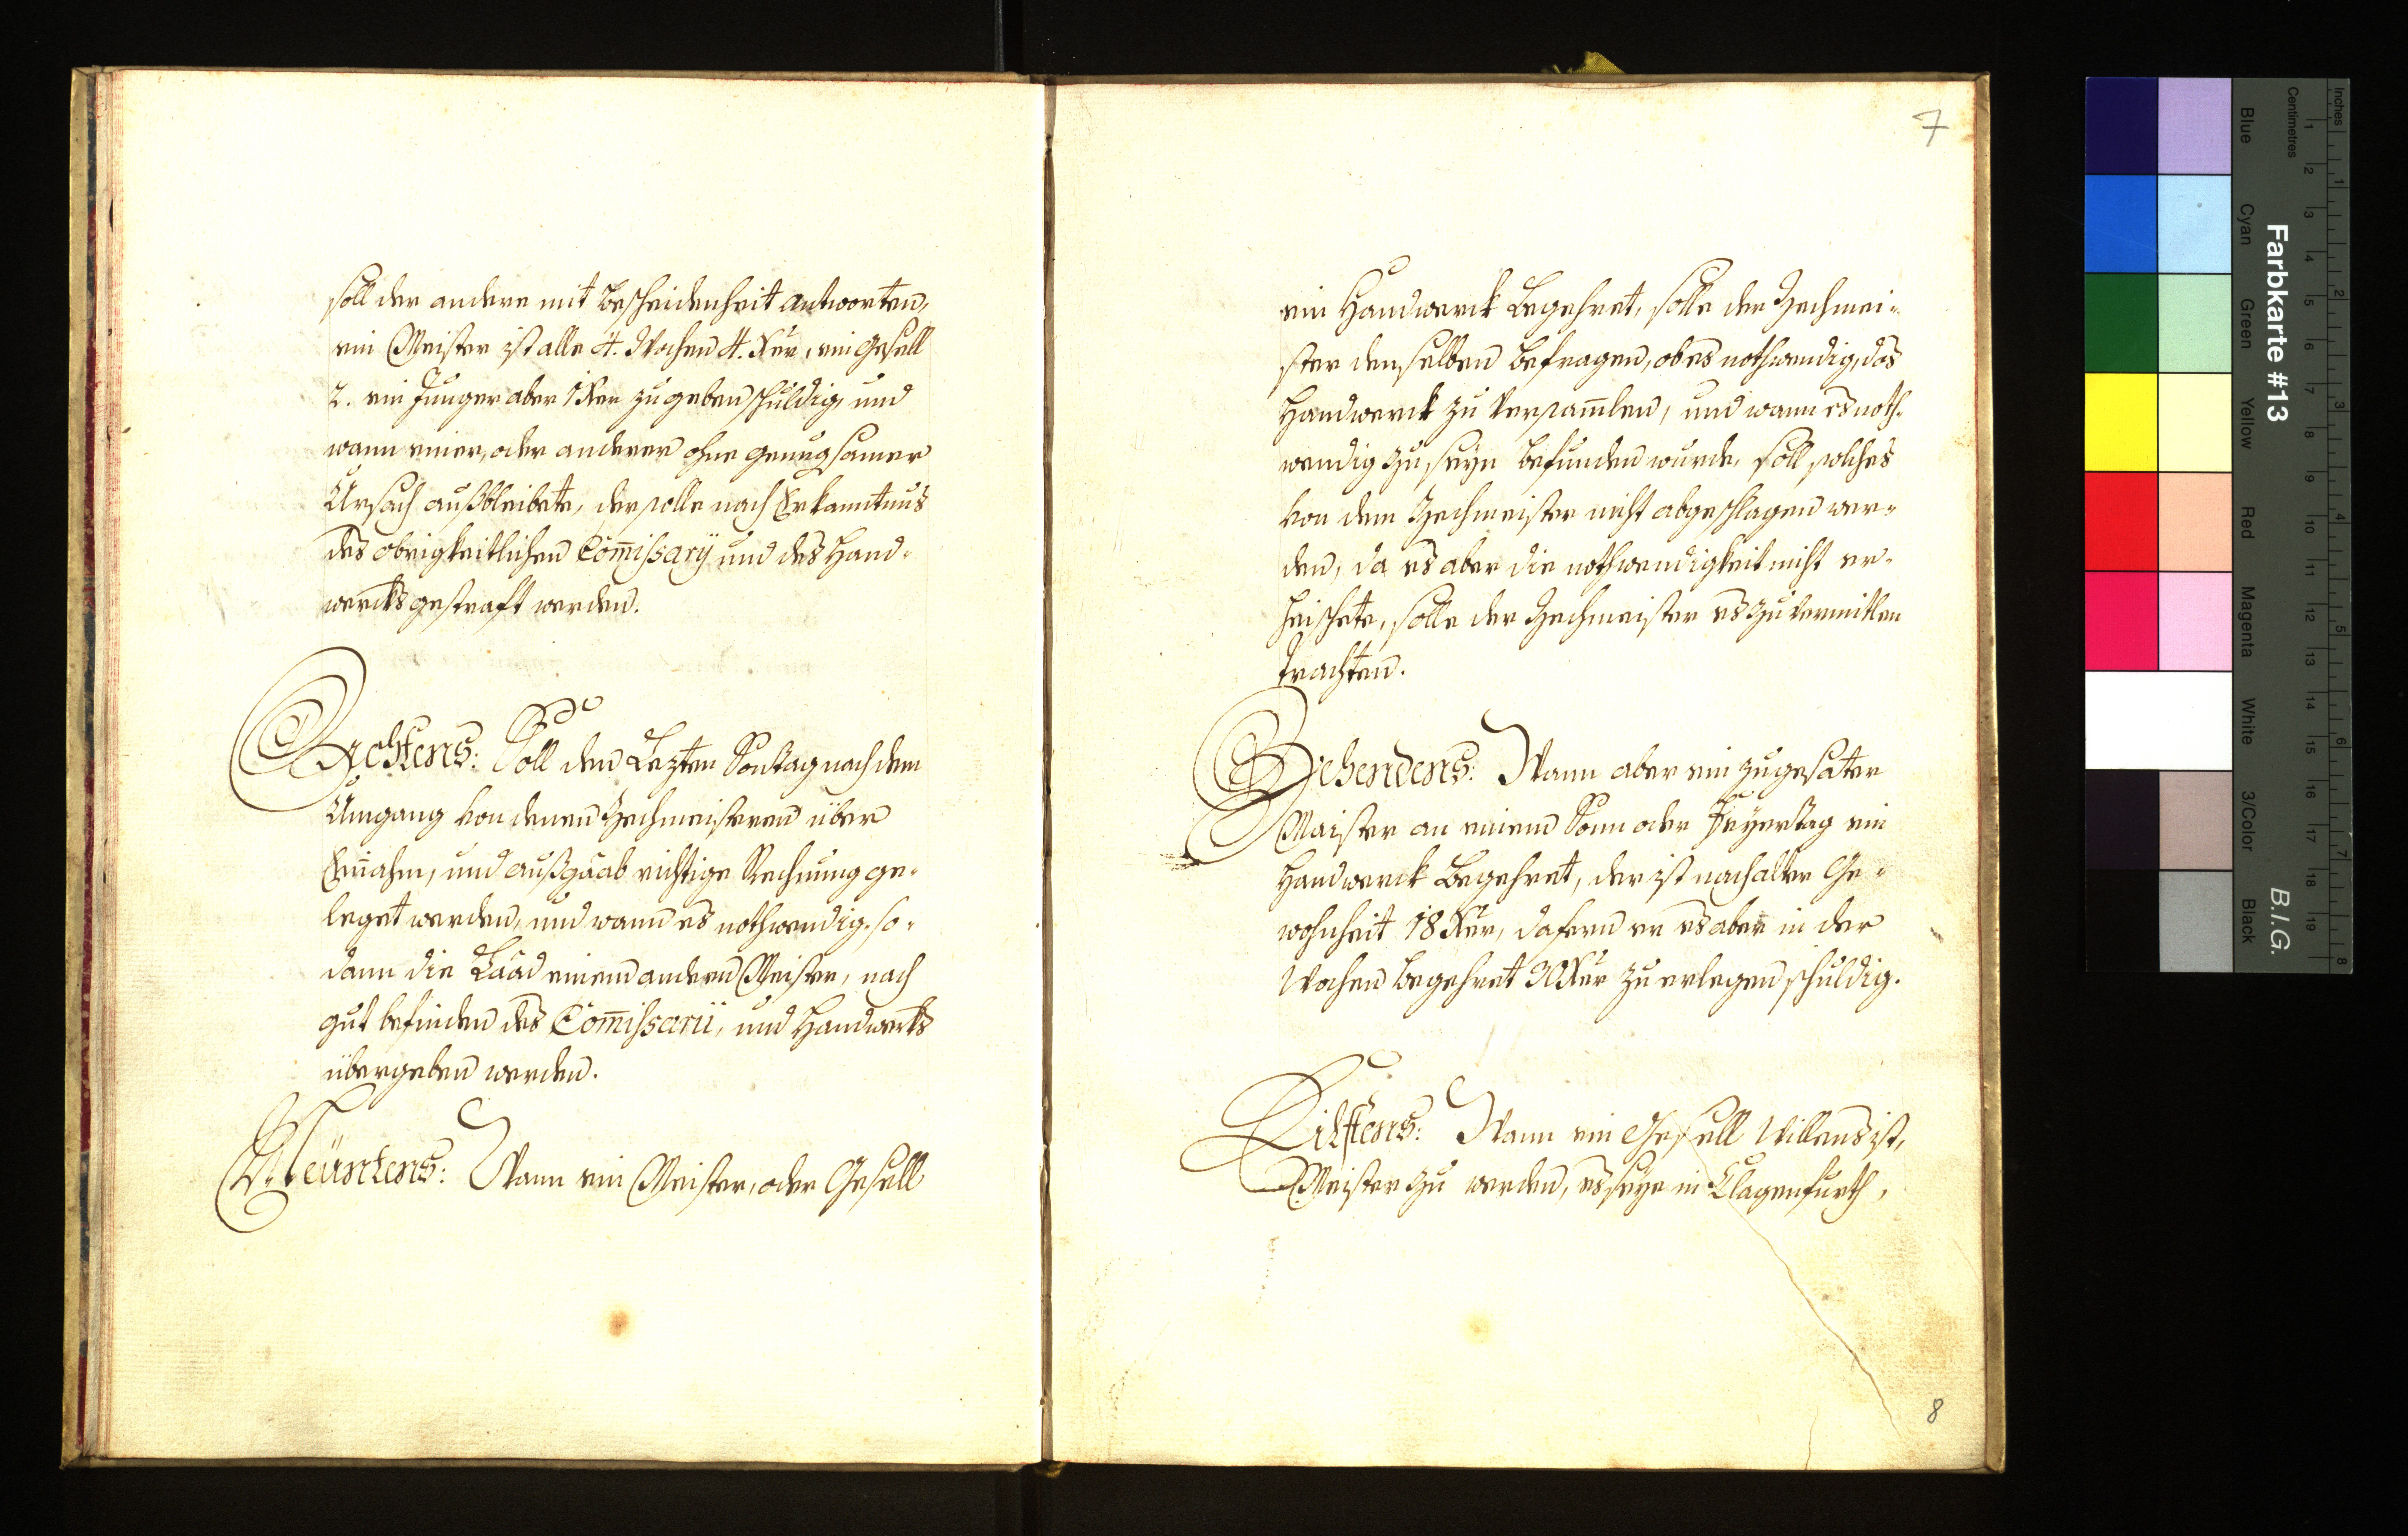 soll der andere mit Bescheidenheit antworten,
ein Meister ist alle 4. Wochen 4. Xer, ein Gesell
2. ein Junger aber 1 Xer zu geben schuldig, und
wann einer, oder anderer ohne genugsamer
Ursach außbleibete, der solle nach Erkanntnus
des obrigkeitlichen Com̅issarÿ und des Hand-
wercks gestraft werden.
Achtens: Soll den Lezten Sontag nach dem
Umgang von denen Zechmeisteren über
Ein̅ahm, und außgaab richtige Rechnung ge-
leget werden, und wann es nothwendig. so-
dann die Laad einem andern Meister, nach
gut befinden des Com̅issarii, und Handwerks
übergeben werden.
Neüntens: Wann ein Meister, oder Gesell
7
ein Handwerck begehret, solle der Zechmei-
ster denselben befragen, ob es nothwendig, das
Handwerck zu versam̅len, und wann es noth-
wendig zu seyn befunden wurde, soll solches
von dem Zechmeister nicht abgeschlagen wer-
den, da es aber die nothwendigkeit nicht er-
heischete, solle der Zechmeister es zu vermitlen
trachten.
Zehendens: Wann aber ein zugesäter
Maister an einem Sonn oder Feyertag ein
Handwerck begehret, der ist nach alter Ge-
wohnheit 18 Xer, dafern er es aber in der
Wochen begehret 30 Xer zu erlegen schuldig.
Eilftens: Wann ein Gesell Willens ist,
Meister zu werden, es seye in Clagenfurth,
8
Farbkarte #13
B.I.G.
Inches
Centimetres
Blue
Cyan
Green
Yellow
Red
Magenta
White
3/Color
Black